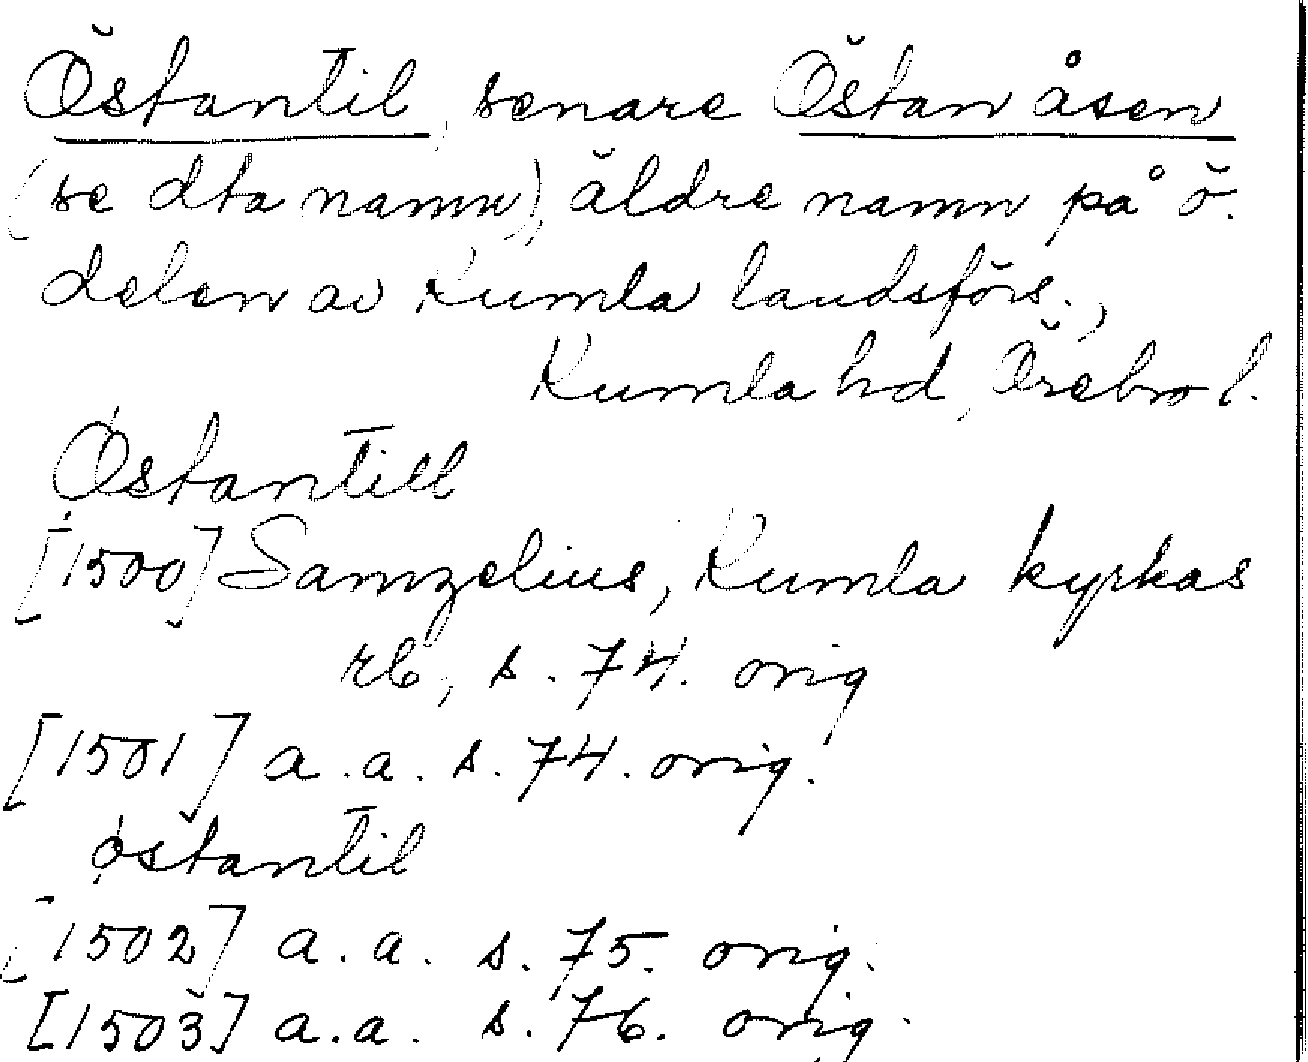 Östantil, senare Östan åsen
(se dta namn), äldre namn på ö.
delen av Kumla landsförs.,
Kumla hd, Örebro l.
Østantill
[1500] Samzelius, Kumla kyrkas
rb, s. 74. orig
[1501] a.a. s. 74. orig.
østantil
[1502] a.a. s. 75. orig.
[1503] a.a. s. 76. orig.